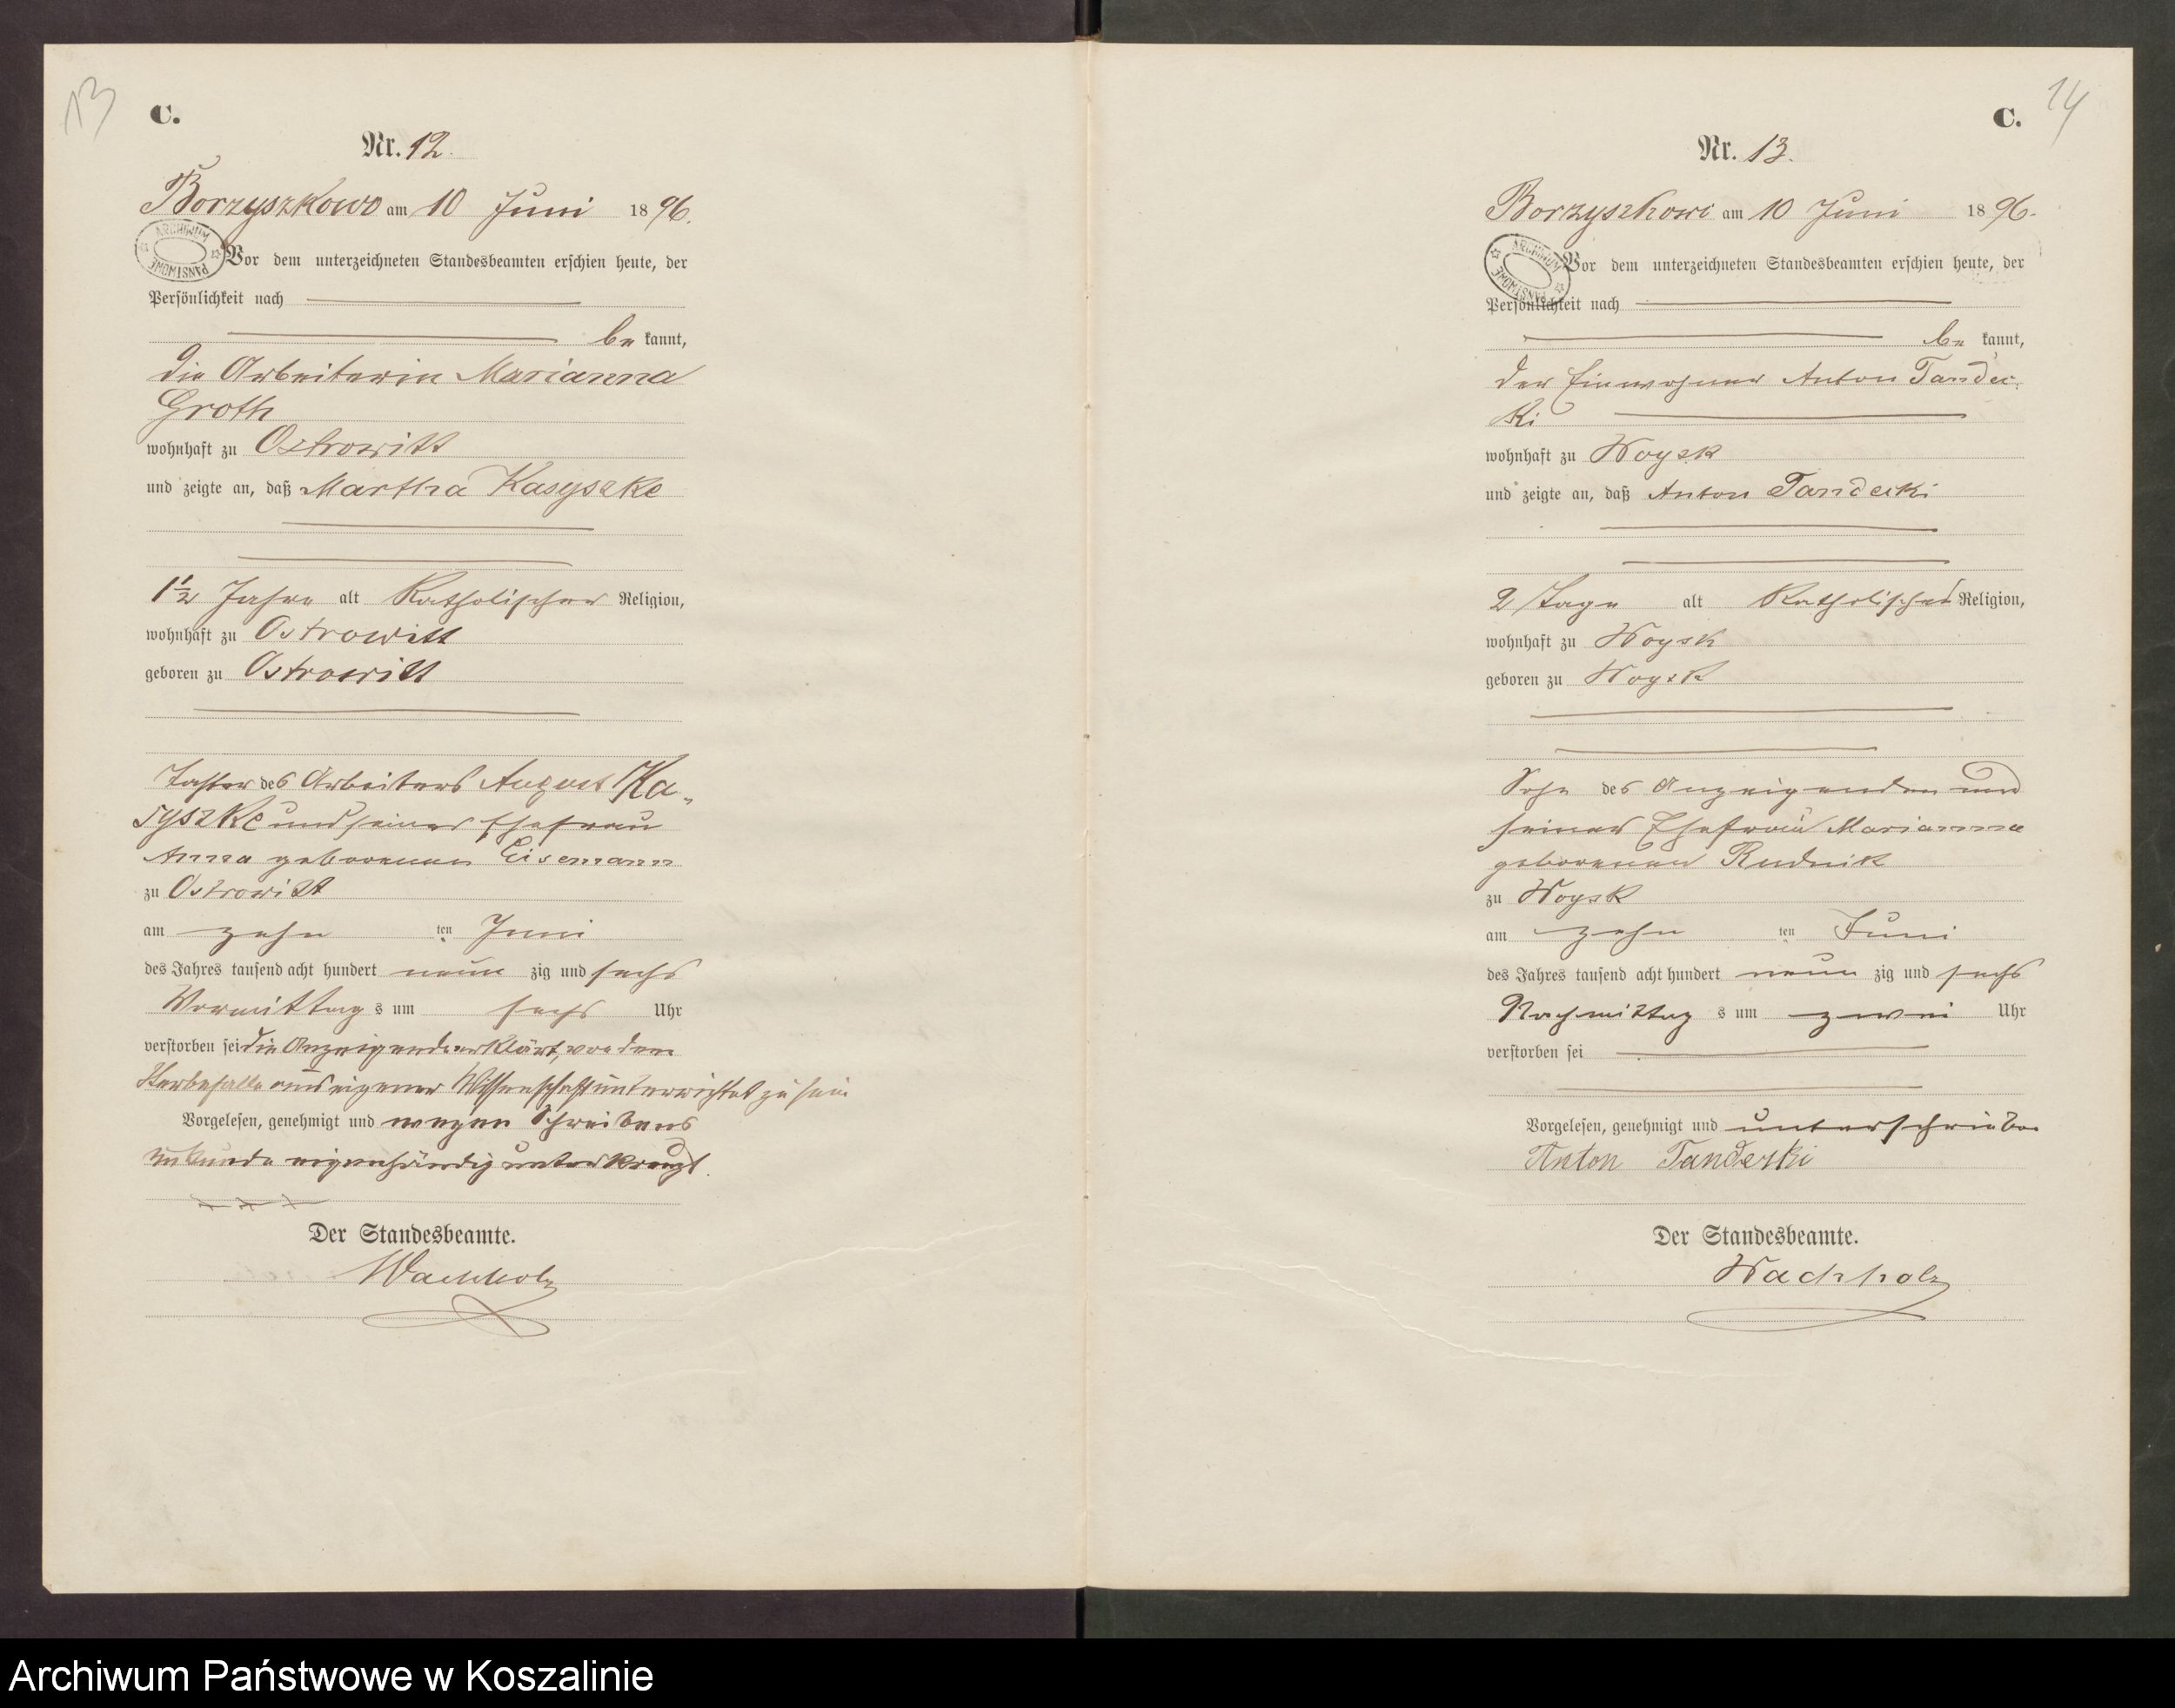 13
C.
Nr. 12.
Borzyszkowo am 10 Juni 1896.
Vor dem unterzeichneten Standesbeamten erschien heute, der
Persönlichkeit nach
be kannt,
die Arbeiterin Marianna
Groth
wohnhaft zu Ostrowitt
und zeigte an, daß Martha Kasyszke
1½ Jahre alt Katholischer Religion,
wohnhaft zu Ostrowitt
geboren zu Ostrowitt
Tochter des Arbeiters August Ka-
syszke und seiner Ehefrau
Anna geborenen Eisemann
zu Ostrowitt
am zehn ten Juni
des Jahres tausend acht hundert neun zig und sechs
Vormittag s um sechs Uhr
verstorben sei die Anzeigende erklärt, von dem
Sterbefalle aus eigener Wissenschaft unterrichtet zu sein
Vorgelesen, genehmigt und wegen Schreibens
unkunde eigenhändig unterkreuzt.
+ + +
Der Standesbeamte.
Wachholz
ARCHIWUM PAŃSTWOWE
14
C.
Nr. 13.
Borzyszkowo am 10 Juni 1896.
Vor dem unterzeichneten Standesbeamten erschien heute, der
Persönlichkeit nach
be kannt,
der Einwohner Anton Tandec-
ki
wohnhaft zu Woysk
und zeigte an, daß Anton Tandecki
2 Tage alt Katholischer Religion,
wohnhaft zu Woysk
geboren zu Woysk
Sohn des Anzeigenden und
seiner Ehefrau Marianna
geborenen Rudnik
zu Woysk
am zehn ten Juni
des Jahres tausend acht hundert neun zig und sechs
Nachmittag s um zwei Uhr
verstorben sei
Vorgelesen, genehmigt und unterschrieben
Anton Tanderski
Der Standesbeamte.
Wachholz
ARCHIWUM PAŃSTWOWE
Archiwum Państwowe w Koszalinie